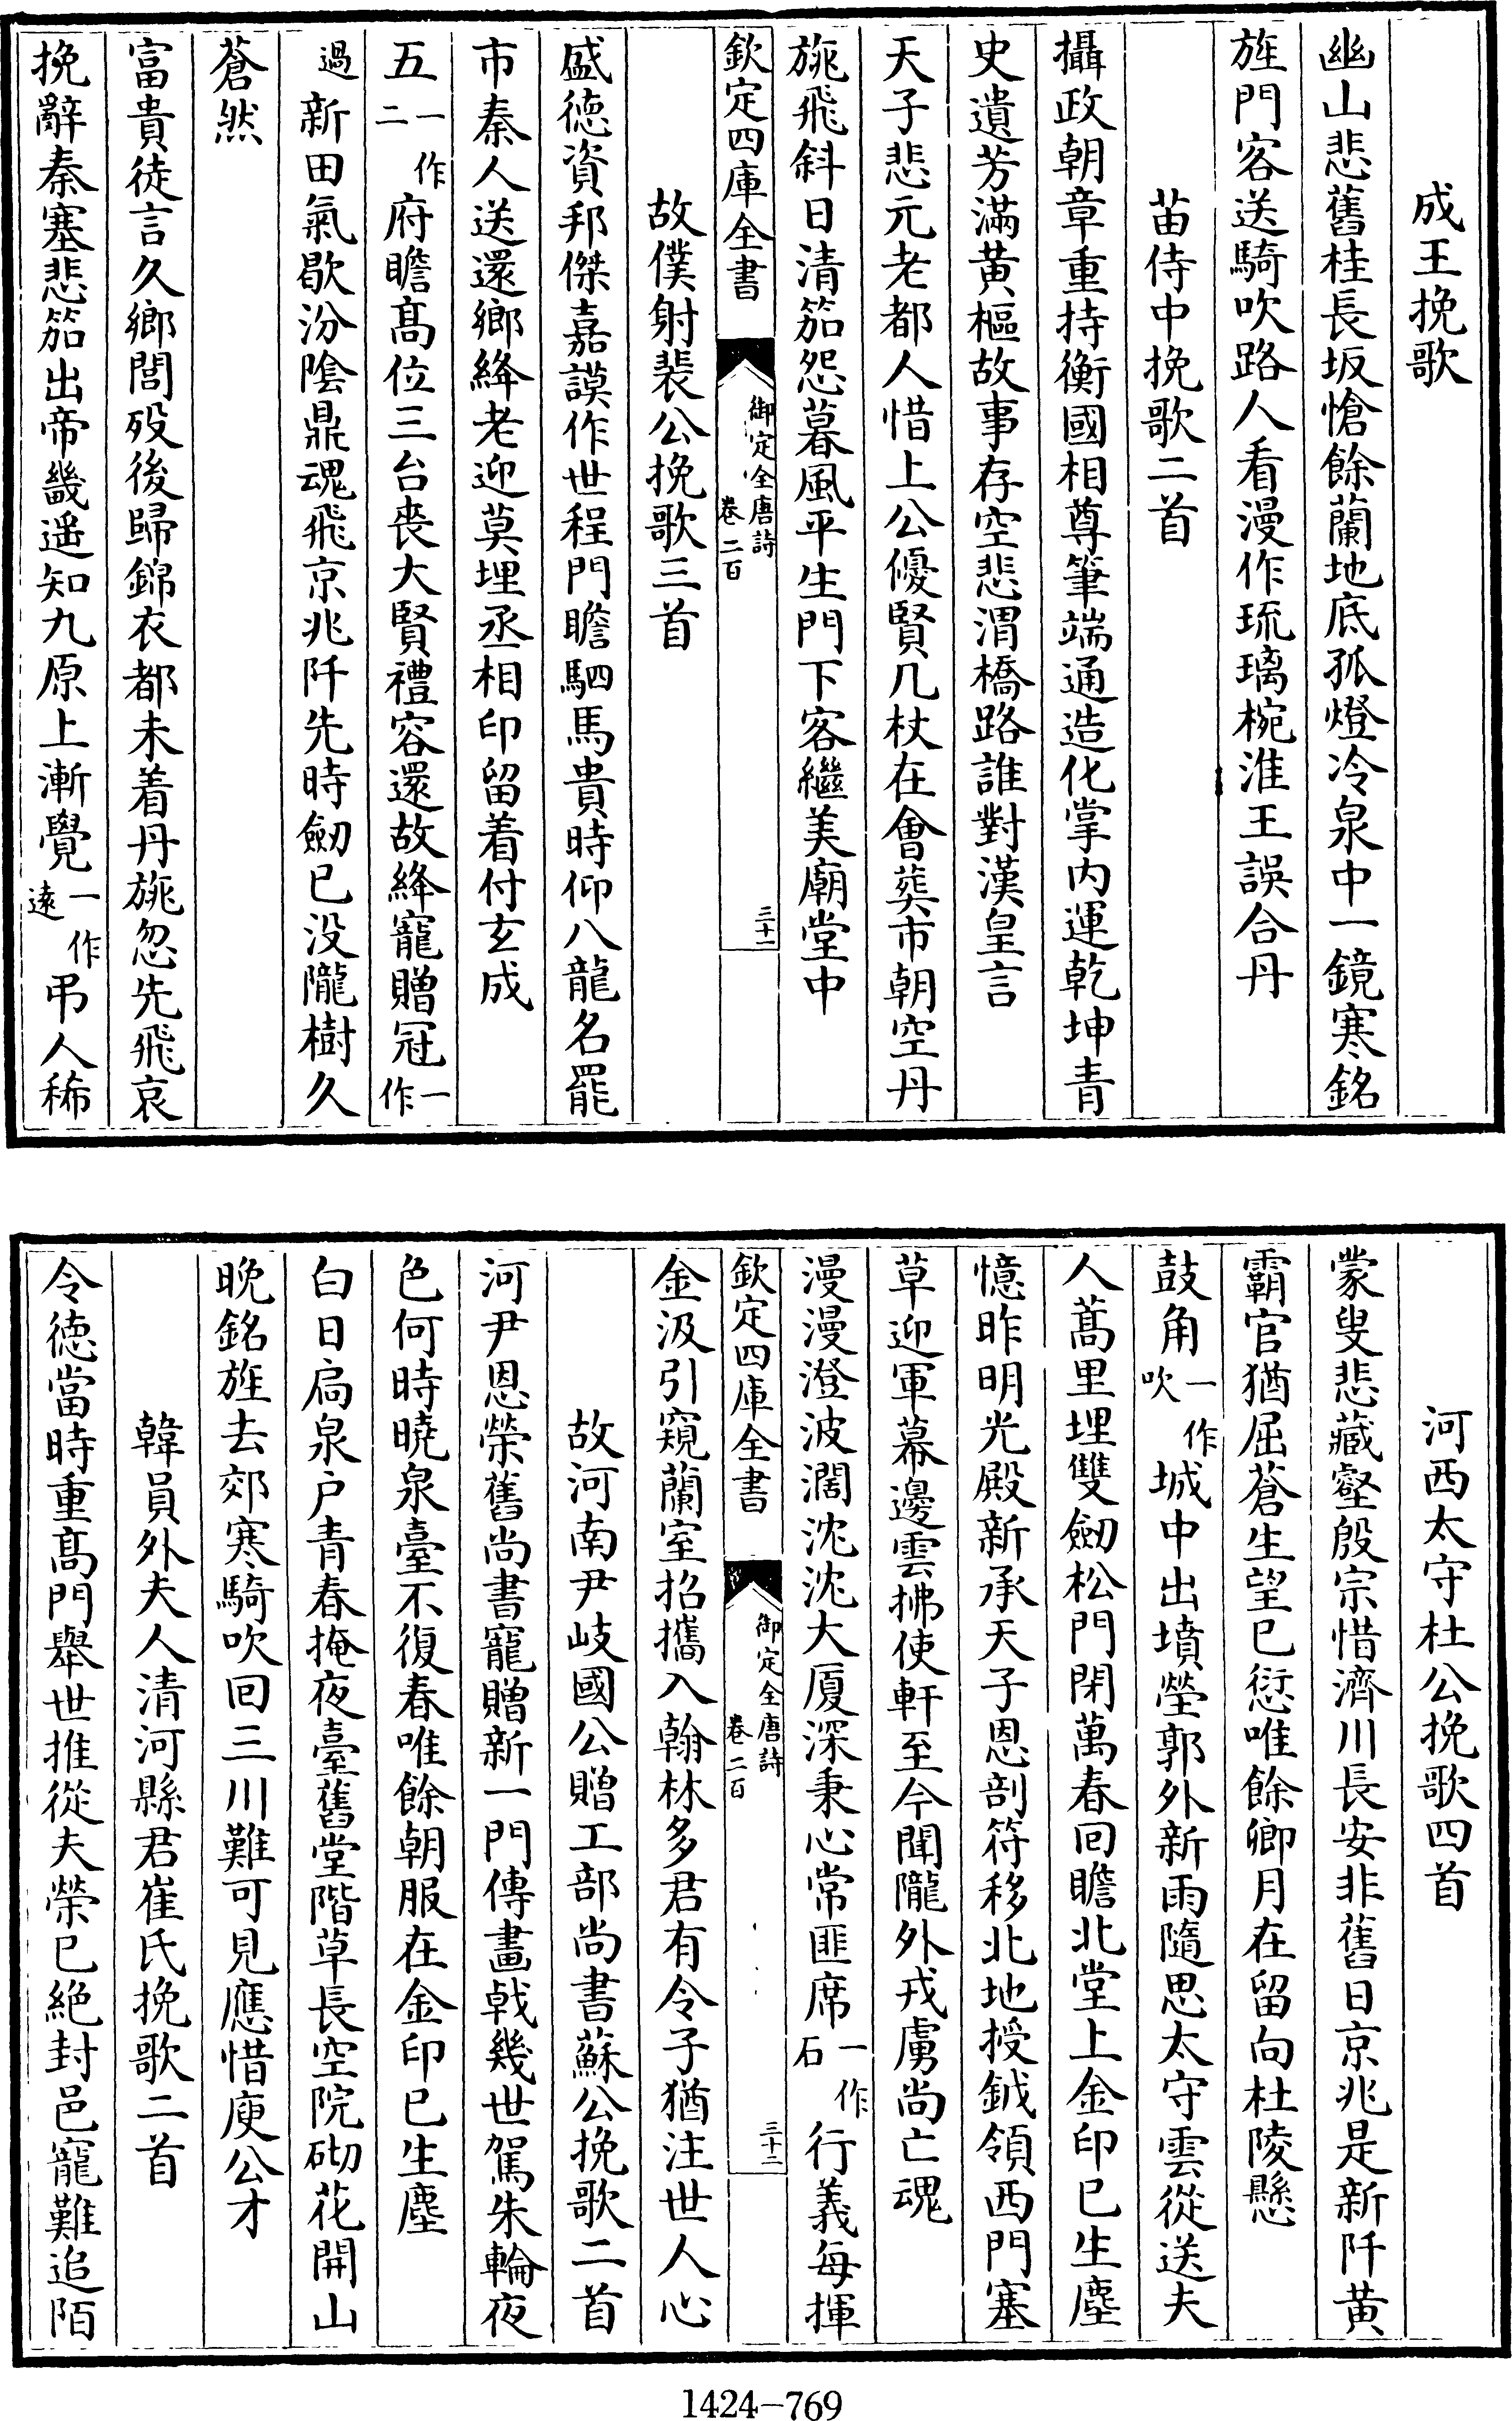 成王挽歌
幽山悲舊桂長坂愴餘蘭地底孤燈冷泉中一鏡寒銘
旌門客送騎吹路人看漫作琉璃椀淮王誤合丹
苗侍中挽歌二首
攝政朝章重持衡國相尊筆端通造化掌內運乾坤青
史遺芳滿黃樞故事存空悲渭橋路誰對漢皇言
天子悲元老都人惜上公優賢几杖在會葬市朝空丹
旐飛斜日清笳怨暮風平生門下客繼美廟堂中
欽定四庫全書
御定全唐詩
卷二百
三十一
故僕射裴公挽歌三首
盛德資邦傑嘉謨作世程門瞻駟馬貴時仰八龍名罷
市秦人送還鄉絳老迎莫埋丞相印留着付玄成
五一作二府瞻高位三台喪大賢禮容還故絳寵贈冠一作
過新田氣歇汾陰鼎魂飛京兆阡先時劒已没隴樹久
蒼然
富貴徒言久鄉閭殁後歸錦衣都未着丹旐忽先飛哀
挽辭秦塞悲笳出帝畿遥知九原上漸覺一作遠弔人稀
河西太守杜公挽歌四首
蒙叟悲藏壑殷宗惜濟川長安非舊日京兆是新阡黃
霸官猶屈蒼生望已愆唯餘卿月在留向杜陵懸
鼓角一作吹城中出墳塋郭外新雨隨思太守雲從送夫
人蒿里埋雙劒松門閉萬春回瞻北堂上金印已生塵
憶昨明光殿新承天子恩剖符移北地授鉞領西門塞
草迎軍幕邊雲拂使軒至今聞隴外戎虜尚亡魂
漫漫澄波濶沈沈大厦深秉心常匪席一作石行義每揮
欽定四庫全書
御定全唐詩
卷二百
三十二
金汲引窺蘭室招攜入翰林多君有令子猶注世人心
故河南尹岐國公贈工部尚書蘇公挽歌二首
河尹恩榮舊尚書寵贈新一門傳畫戟幾世駕朱輪夜
色何時曉泉臺不復春唯餘朝服在金印已生塵
白日扃泉户青春掩夜臺舊堂階草長空院砌花開山
晚銘旌去郊寒騎吹回三川難可見應惜庾公才
韓員外夫人清河縣君崔氏挽歌二首
令德當時重高門舉世推從夫榮已絶封邑寵難追陌
1424-769